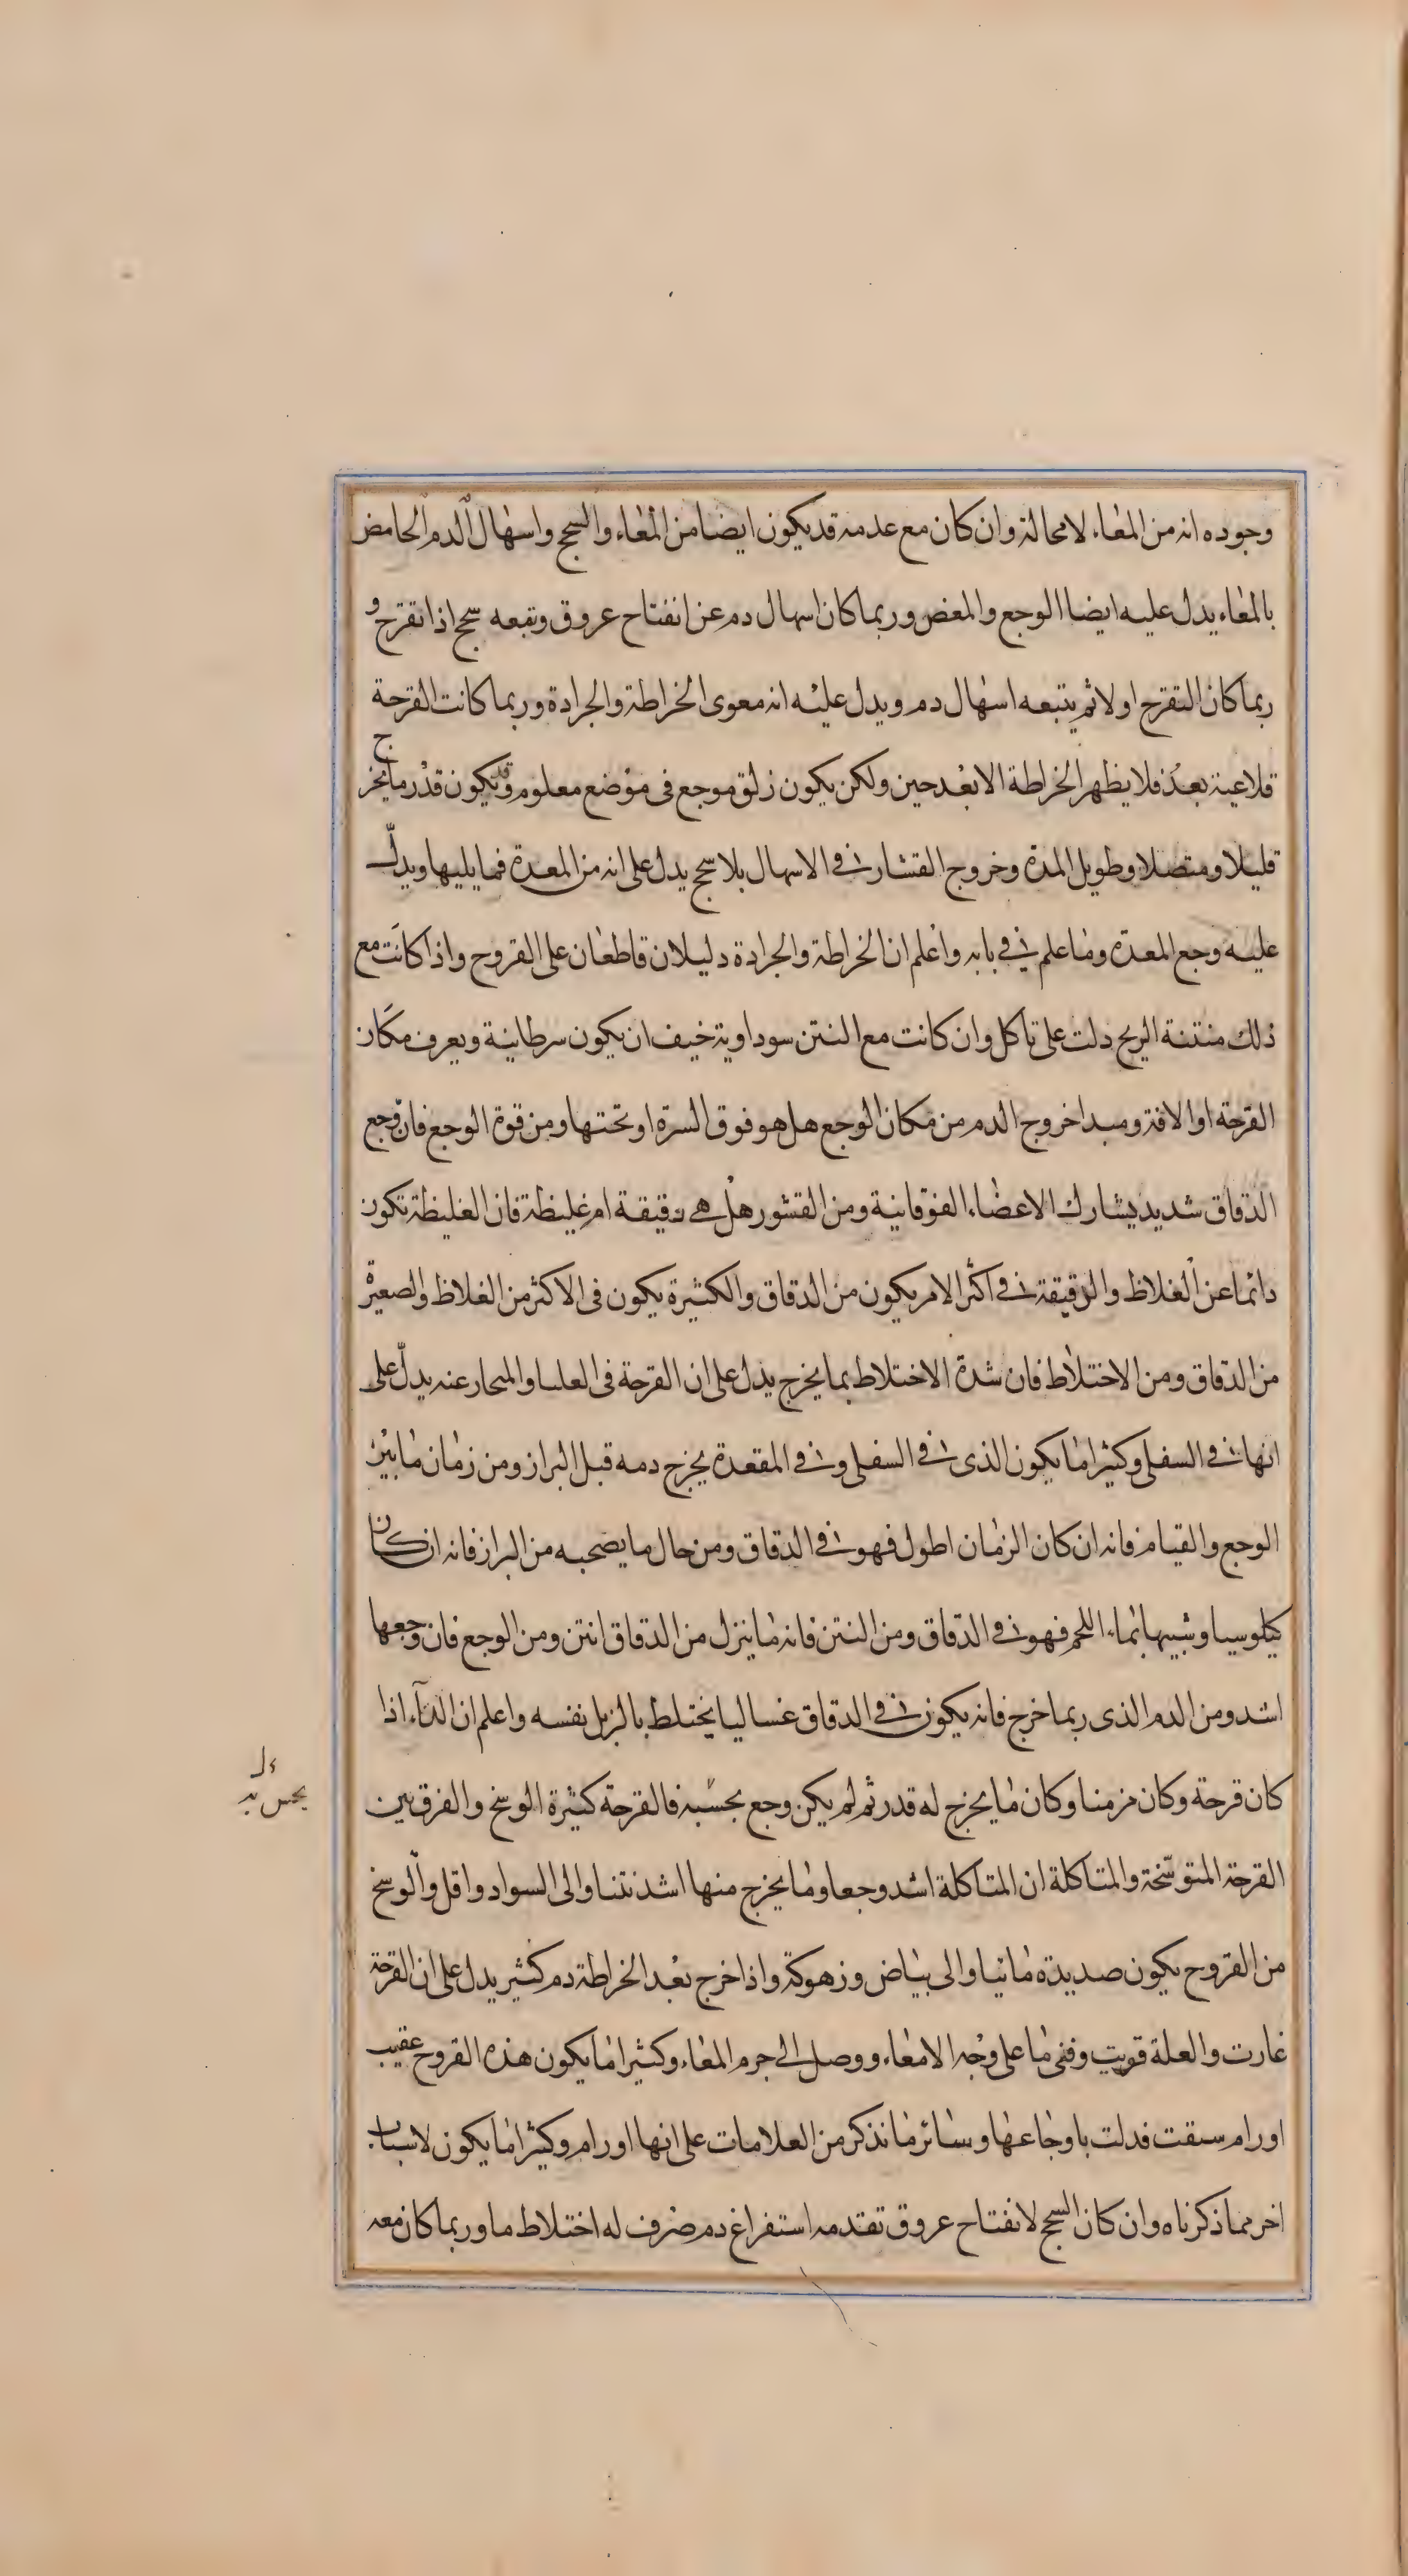 وجوده انه من المعاء لا محالة وان كان مع عدمه قد يكون ايضا من المعاء والسحج واسهال الدم الحامض
بالمعاء يدل عليه ايضا الوجع والمغص وربما كان اسهال دم عن انفتاح عروق وتبعه سحج اذا تقرح و
ربما كان التقرح اولا ثم يتبعه اسهال دم ويدل عليه انه معوى الخراطة والجرادة وربما كانت القرحة
قلاعية بعد فلا يظهر الخراطة الا بعد حين ولكن يكون زلق موجع فى موضع معلوم وقد يكون قدر ما يخرج
قليلا ومتصلا وطويل المدة وخروج القشار فى الاسهال بلا سحج يدل على انه من المعدة فما يليها ويدل
عليه وجع المعدة وما علم فى بابه واعلم ان الخراطة والجرادة دليلان قاطعان على القروح واذا كانت مع
ذلك منتنة الريح دلت على تاكل وان كانت مع النتن سوداوية خيف ان يكون سرطانية ويعرف مكان
القرحة او الافة ومبدا خروج الدم من مكان الوجع هل هو فوق السرة او تحتها ومن قوة الوجع فان وجع
الدقاق شديد يشارك الاعضاء الفوقانية ومن القشور هل هى دقيقة ام غليظة فان الغليظة تكون
دائما عن الغلاظ والرقيقة فى اكثر الامر يكون من الدقاق والكثيرة يكون فى الاكثر من الغلاظ والصغيرة
من الدقاق ومن الاختلاط فان شدة الاختلاط بما يخرج يدل على ان القرحة فى العليا والمنحاز عنه يدل على
انها فى السفلى وكثيرا ما يكون الذى فى السفلى وفى المقعدة يخرج دمه قبل البراز ومن زمان ما بين
الوجع والقيام فانه ان كان الزمان اطول فهو فى الدقاق ومن حال ما يصحبه من البراز فانه ان كان
كيلوسيا وشبيها بماء اللحم فهو فى الدقاق ومن النتن فانه ما ينزل من الدقاق انتن ومن الوجع فان وجعها
اشد ومن الدم الذى ربما خرج فانه يكون فى الدقاق غساليا يختلط بالزبل نفسه واعلم ان الداء اذا
كان قرحة وكان مزمنا وكان ما يخرج له قدر ثم لم يكن وجع بحسبه فالقرحة كثيرة الوسخ والفرق بين
القرحة المتوسخة والمتاكلة ان المتاكلة اشد وجعا وما يخرج منها اشد نتنا والى السواد واقل والوسخ
من القروح يكون صديده مائيا والى بياض وزهوكة واذا خرج بعد الخراطة دم كثير يدل على ان القرحة
غارت والعلة قويت وفنى ما على وجه الامعاء ووصل الى جرم المعاء وكثيرا ما يكون هذه القروح عقيب
اورام سبقت فدلت باوجاعها وسائر ما نذكر من العلامات على انها اورام وكثيرا ما يكون لاسباب
اخر مما ذكرناه وان كان السحج لانفتاح عروق تقدمه استفراغ دم صرف له اختلاط ما وربما كان معه